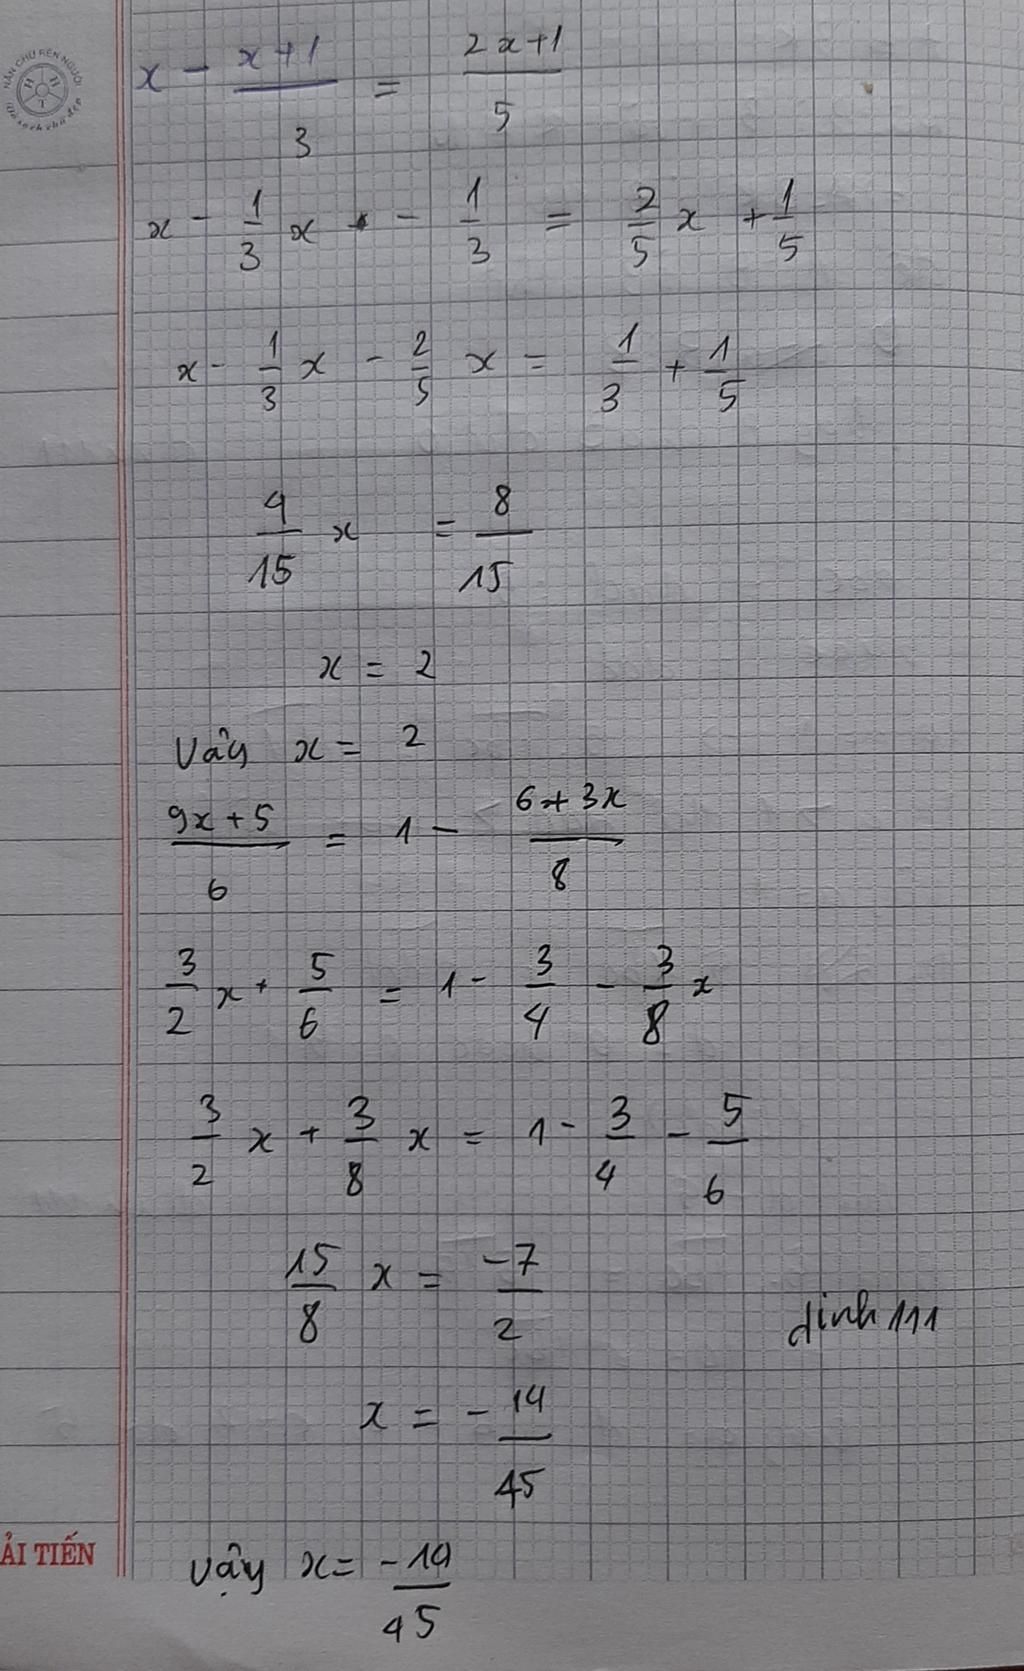 NẮN CHỮ RÈN NGƯỜI
x - (x+1)/3 = (2x+1)/5
x - 1/3 x - 1/3 = 2/5 x + 1/5
x - 1/3 x - 2/5 x = 1/3 + 1/5
4/15 x = 8/15
x = 2
Vậy x = 2
(9x+5)/6 = 1 - (6+3x)/8
3/2 x + 5/6 = 1 - 3/4 - 3/8 x
3/2 x + 3/8 x = 1 - 3/4 - 5/6
15/8 x = -7/2
dinh 111
x = - 14/45
ẢI TIẾN
Vậy x = -14/45